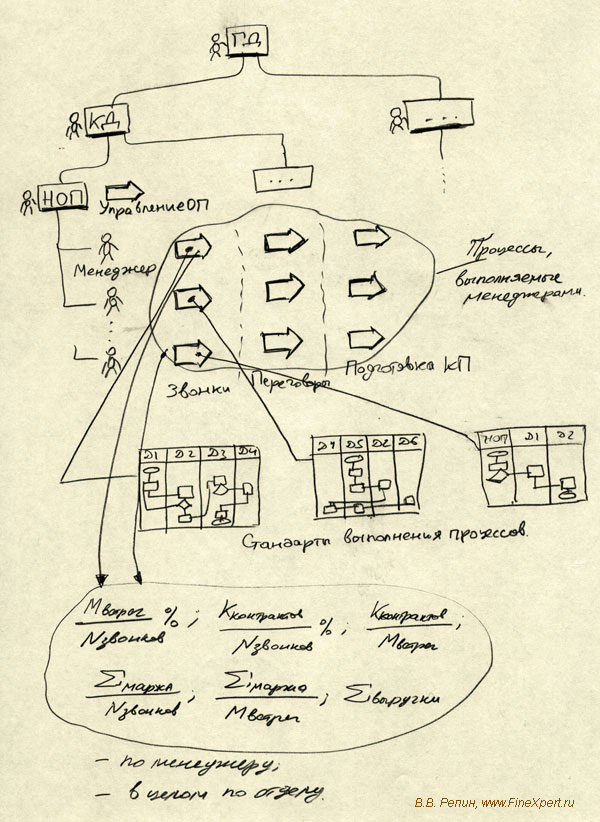 ГД
КД
. . .
НОП
Управление ОП
. . .
Менеджер
Процессы,
выполняемые
менеджерами.
Звонки
Переговоры
Подготовка КП
Д1 Д2 Д3 Д4
Д4 Д5 Д2 Д6
НОП Д1 Д2
Стандарты выполнения процессов.
Mвстреч / Nзвонков %; Kконтрактов / Nзвонков %; Kконтрактов / Mвстреч;
Σмаржа / Nзвонков; Σмаржа / Mвстреч; Σвыручки
– по менеджеру;
– в целом по отделу.
В.В. Репин, www.FineXpert.ru